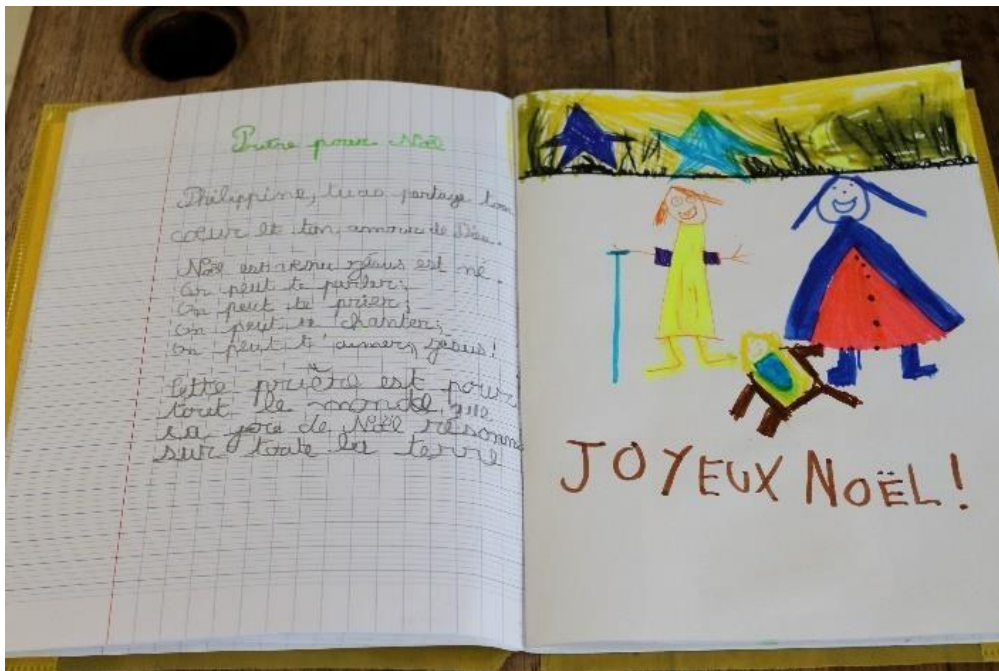 Prière pour Noël
Philippine, tu as partagé ton
coeur et ton amour de Dieu.
Noël est venu Jésus est né.
On peut te parler;
On peut te prier;
On peut te chanter;
On peut t'aimer, Jésus!
Cette prière est pour
tout le monde, que
sa joie de Noël résonne
sur toute la terre
JOYEUX NOËL!